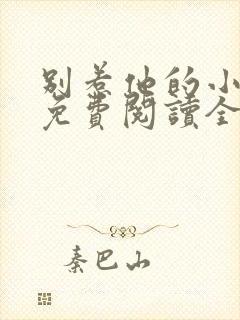 別惹他的小
免費閱讀全
秦巴山